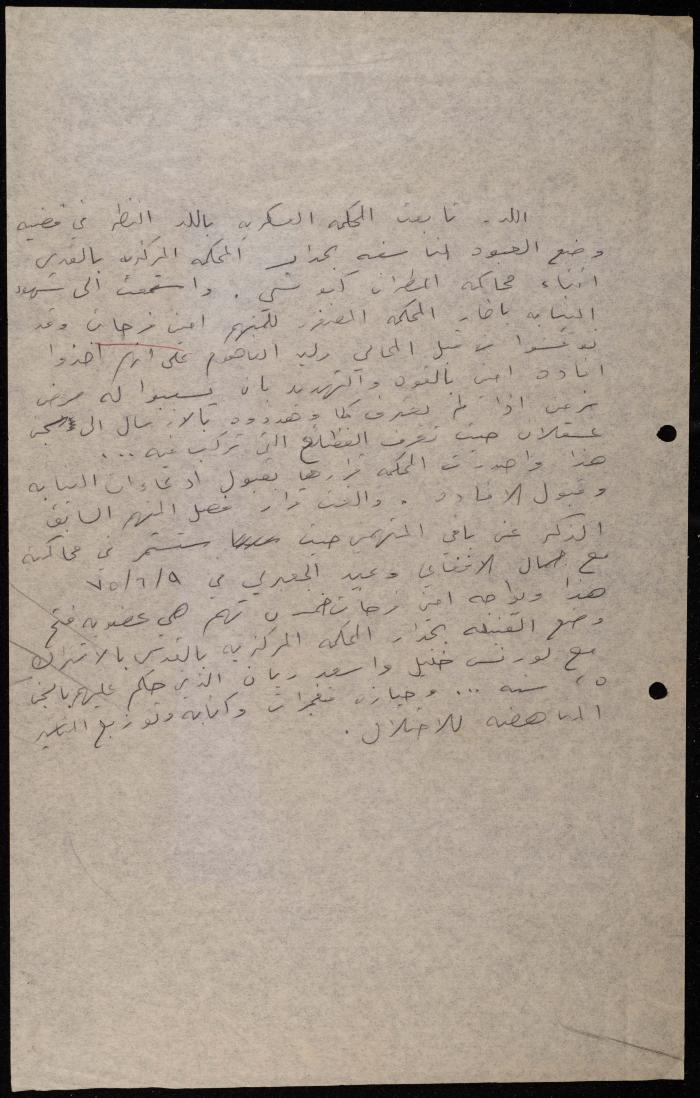 اللد - تابعت المحكمه العسكريه باللد النظر في قضيه
وضع العبوه الناسفه بجدار المحكمه المركزيه بالقدس
اثناء محاكمة المطران كبوتشي . واستمعت الى شهود
النيابه باطار المحكمه المصغره للمتهم امين فرحات وقد
نوقشوا من قبل المحامي وليد الفاهوم على انهم اخذوا
افادة امين بالقوه والتهديد بان يسببوا له مرض
مزمن اذا لم يعترف كما وهددوه بالارسال الى سجن
عسقلان حيث تعرف الفظائع التي ترتكب فيه ...
هذا واصدرت المحكمه قرارها بقبول ادعاءات النيابه
وقبول الافاده . والغت قرار فصل المتهم السابق
الذكر عن باقي المتهمين حيث ستستمر في محاكمته
مع جمال الافغاني وعيد الجعبري في ٧٥/٦/٩
هذا ويواجه امين فرحات خمس تهم هي عضوية فتح
وضع القنبله بجدار المحكمه المركزيه بالقدس بالاشتراك
مع لورنس خليل واسعد ريان الذي حكم عليهم بالسجن
سنه ... وحيازة متفجرات وكتابه وتوزيع المناشير
المناهضه للاحتلال .